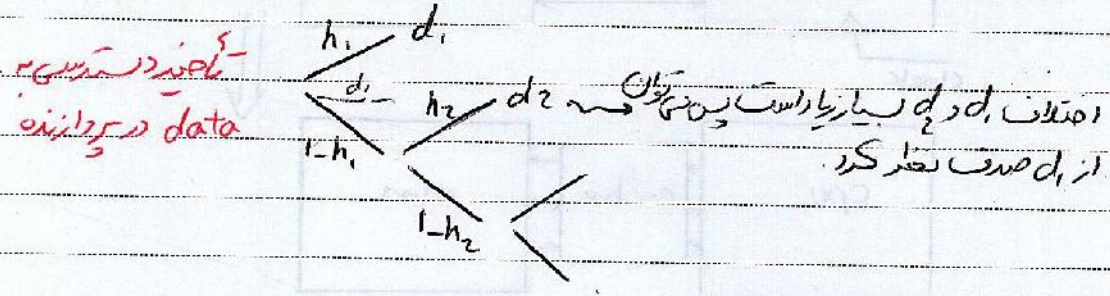 تأخیر دسترسی به
data در پردازنده
h₁ d₁
d₁
h₂ d2
1-h₁
1-h₂
اختلاف d₁ و d₂ بسیار زیاد است پس نمی توان
از d₁ صرف نظر کرد.